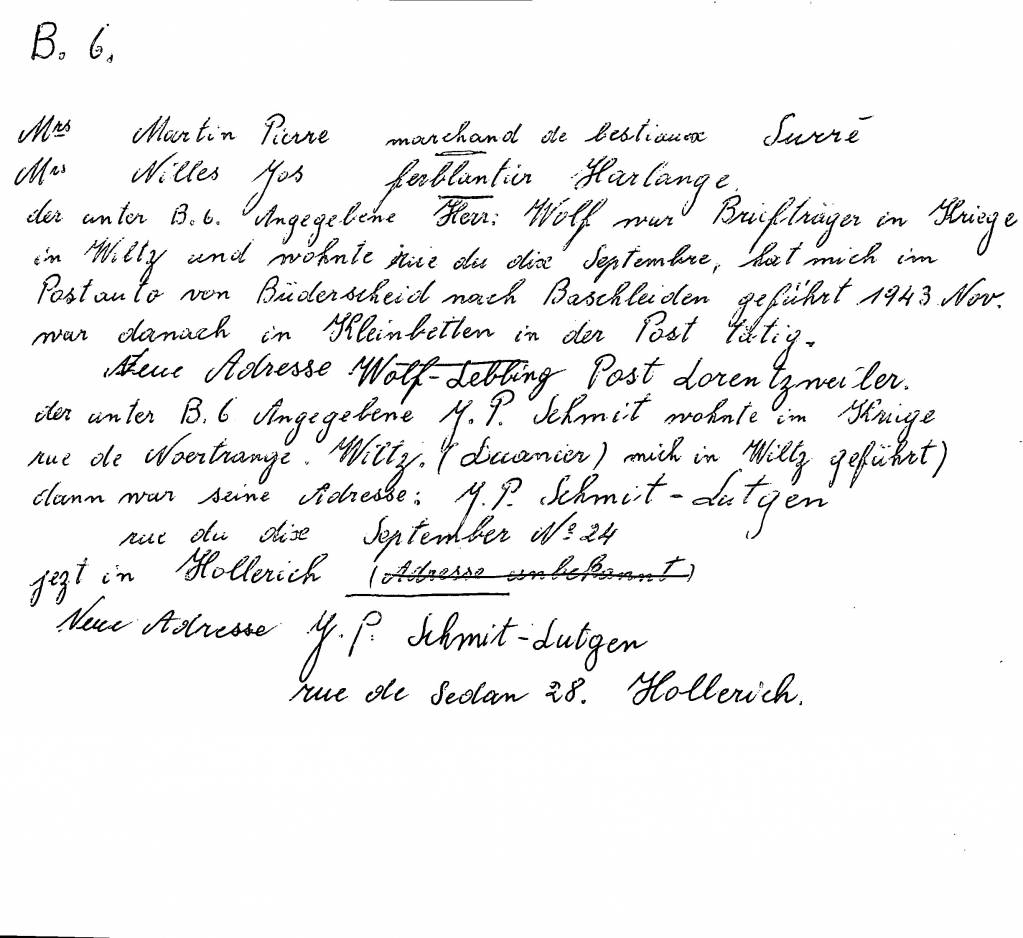 B. 6.
Mrs Martin Pierre marchand de bestiaux Surré
Mrs Nilles Jos ferblantier Harlange.
der unter B.6. Angegebene Herr: Wolf war Briefträger in Kriege
in Wiltz und wohnte rue du dix Septembre, hat mich im
Postauto von Büderscheid nach Baschleiden geführt 1943 Nov.
war danach in Kleinbetten in der Post tätig.
Neue Adresse Wolf-Lebbing Post Lorentzweiler.
der unter B.6 Angegebene J. P. Schmit wohnte im Kriege
rue de Noertrange. Wiltz. (Duanier) mich in Wiltz geführt)
dann war seine Adresse: J. P. Schmit-Lutgen
rue du dix September No 24
jezt in Hollerich (Adresse unbekannt)
Neue Adresse J. P. Schmit-Lutgen
rue de Sedan 28. Hollerich.